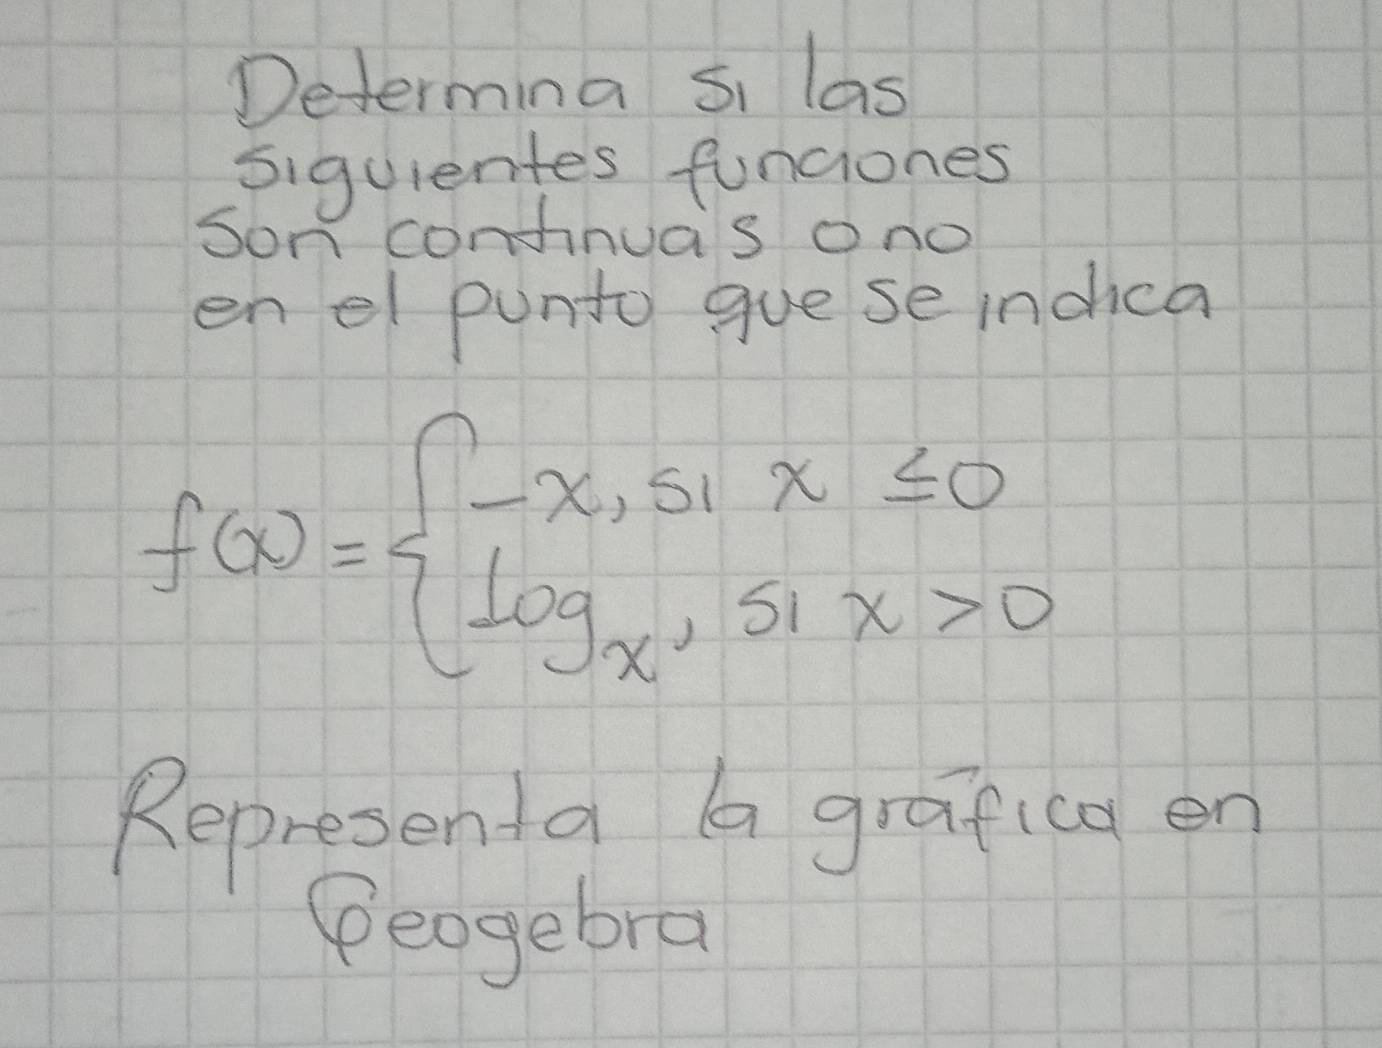 Determina si las
siguientes funciones
son continuas o no
en el punto que se indica
f(x) = { -x, si x ≤ 0
log x, si x > 0
Representa la gráfica en
Geogebra